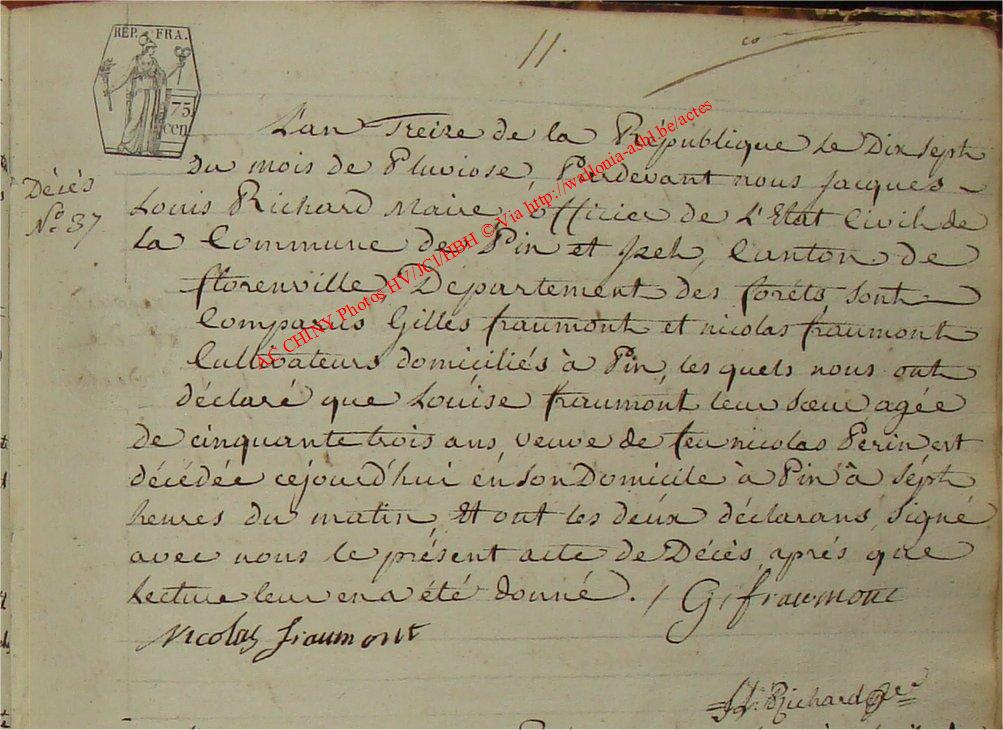 REP. FRA.
75
cen
11.
L'an Treize de la République Le Dix Sept
Décés
N.° 37
Du mois de Pluviose, Pardevant nous Jacques
Louis Richard Maire, officier de L'Etat Civil de
La Commune de Pin et Izel, Canton de
florenville, Département des foréts, sont
Comparus Gilles fraumont et nicolas fraumont
Cultivateurs domiciliés à Pin, les quels nous ont
déclaré que Louise fraumont leur sœur agée
de cinquante trois ans, veuve de feu nicolas Perin est
décédée cejourd'hui en son Domicile à Pin à sépt
heures du matin, Et ont les deux déclarans, Signé
avec nous le présent acte de Décès, aprés que
Lecture leur en a été donné. / G. fraumont
Nicolas fraumont
Richard
AC CHINY Photos HV/JCI/HBH © Via http://wallonia-asbl.be/actes